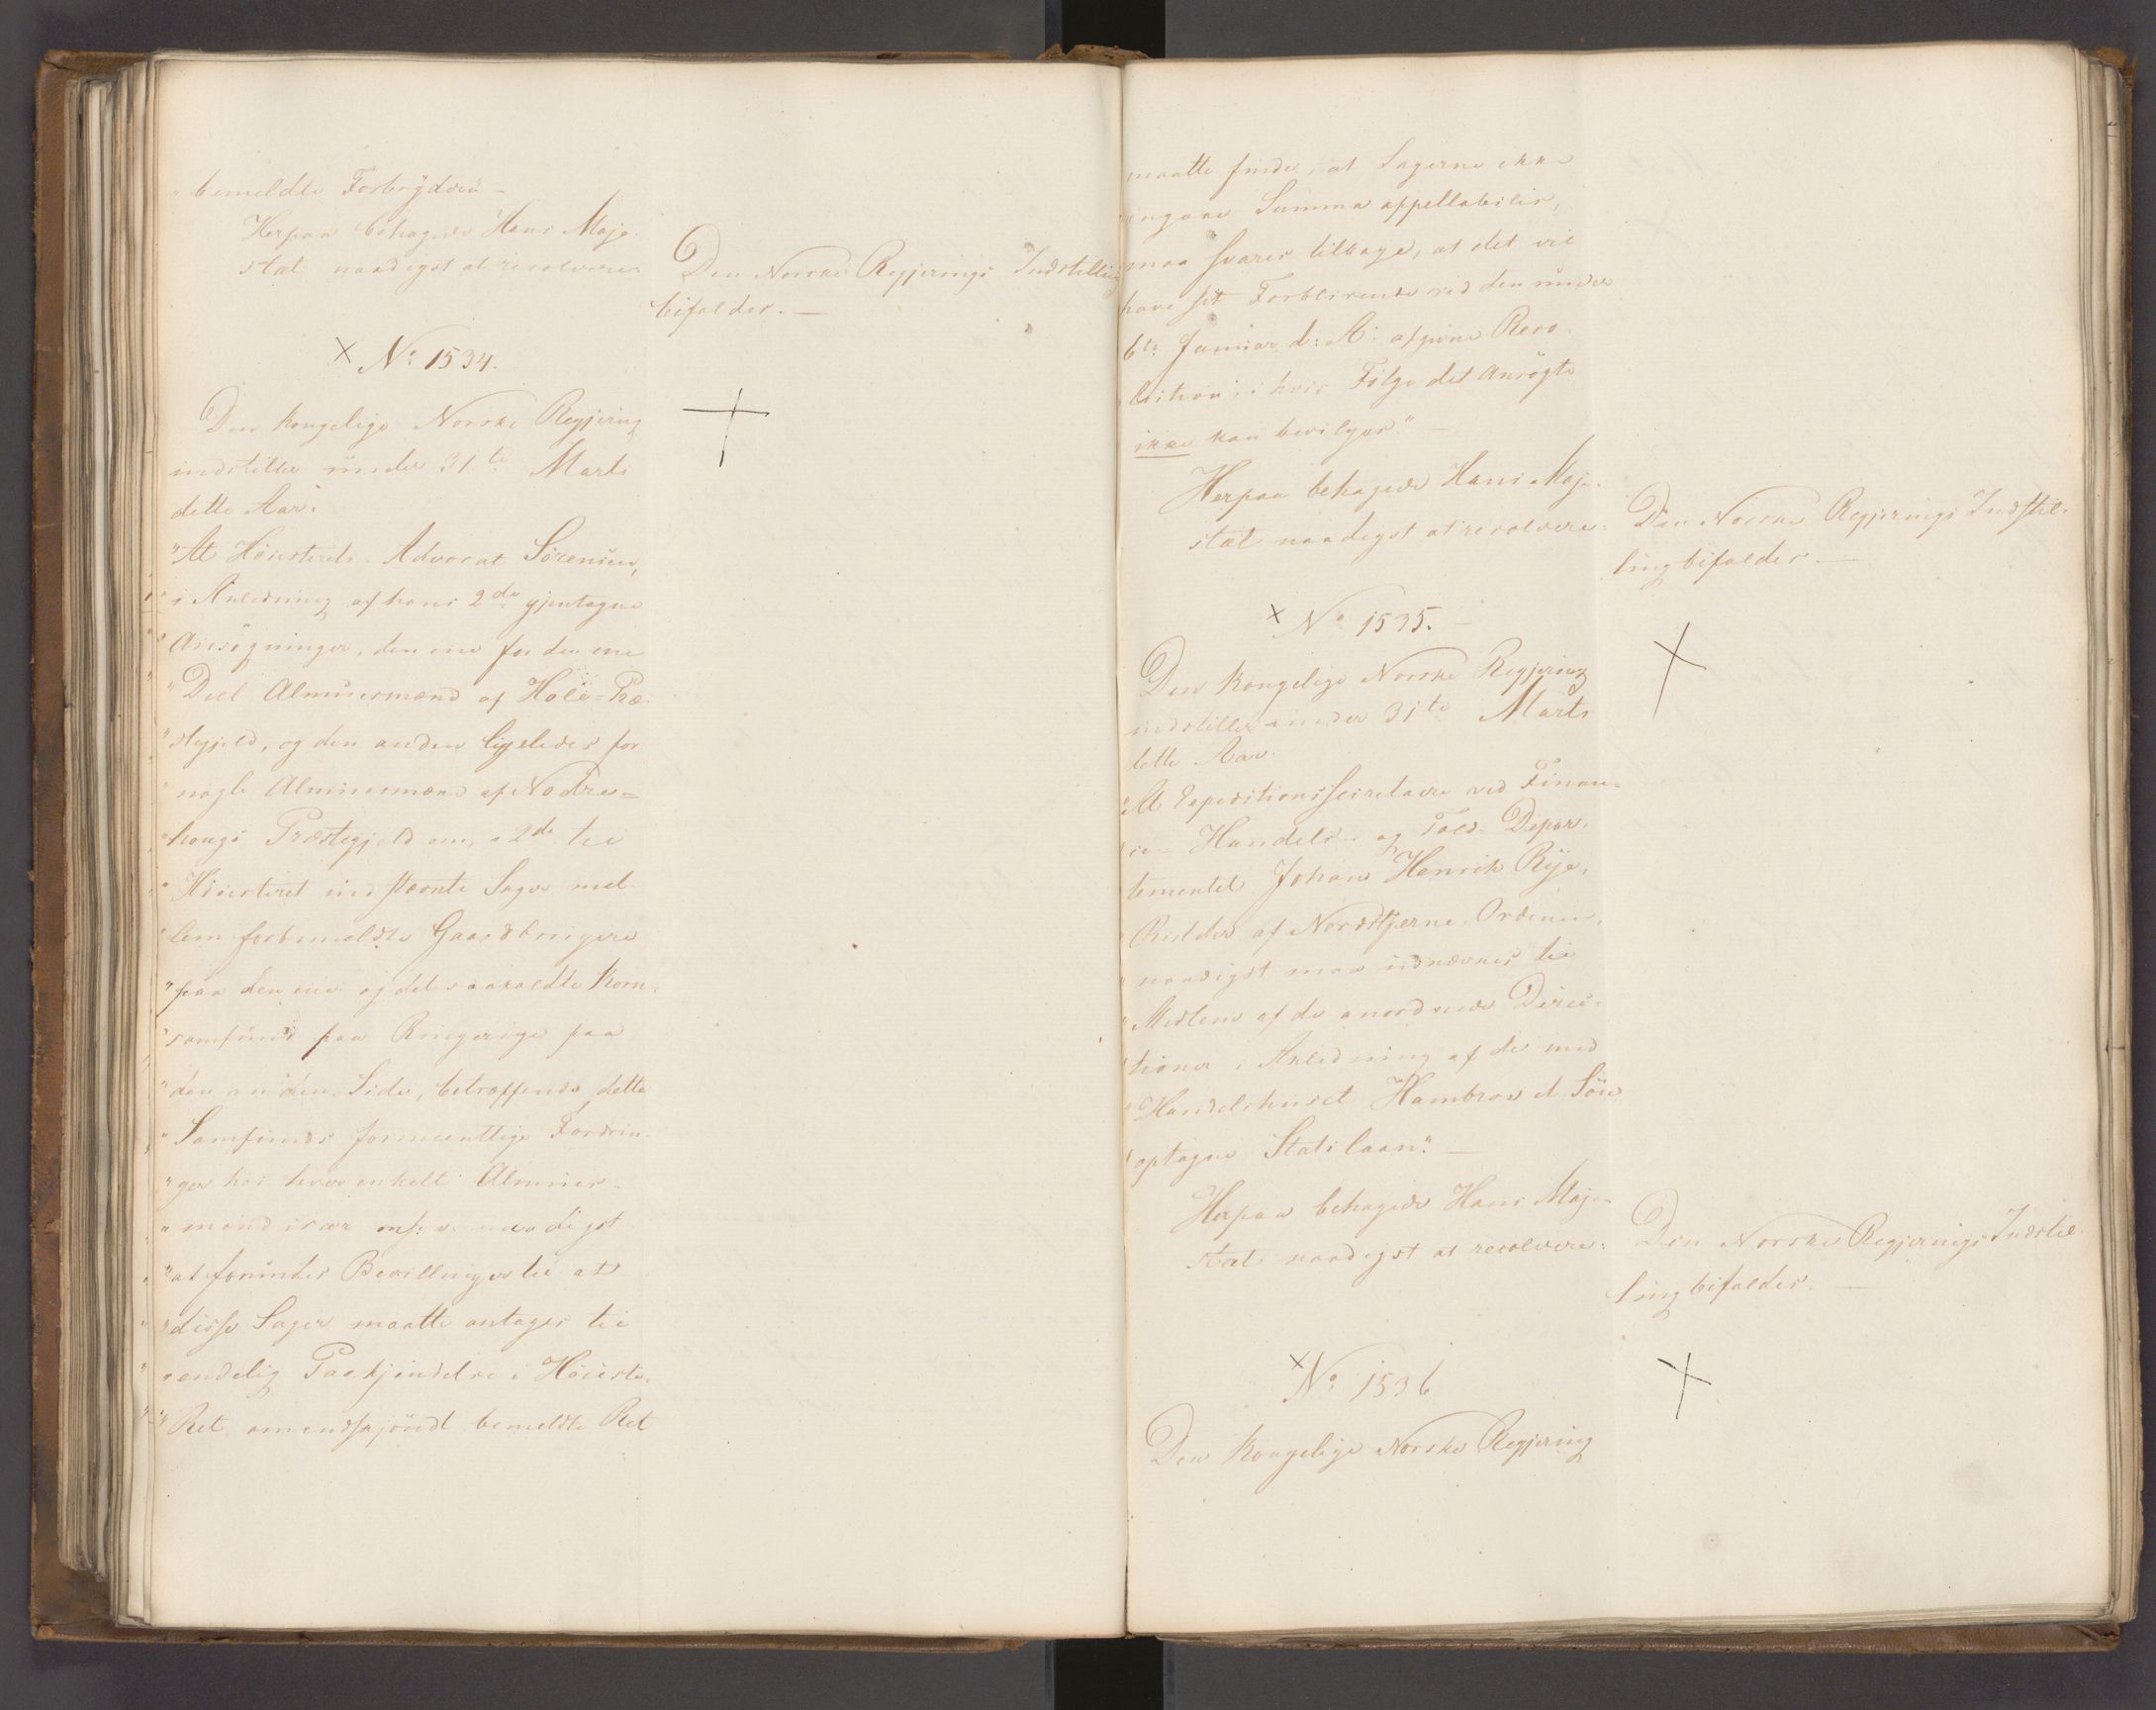 "bemeldte Forbrydere –
Herpaa behagede Hans Maje-
stæt naadigst at resolvere:
Den Norske Regjerings Indstilling
bifaldes. —
× No: 1534.
Den kongelige Norske Regjering
indstiller under 31te Marts
dette Aar:
"At Høiesterets-Advocat Sørensen,
"i Anledning af hans 2de gjentagne
"Ansøgninger, den ene for den ene
"Deel Almuesmænd af Hole-Præ-
"stegjeld, og den anden ligeledes for
"nogle Almuesmænd af Nodre-
"hougs Præstegjeld om, i 2de til
"Høiesteret indstævnte Sager mel-
"lem forbemeldte Gaardbrugere
"paa den ene og det saakaldte Korn-
"samfund paa Ringerige paa
"den anden Side, betræffende dette
"Samfunds formeentlige Fordrin-
"ger hos hver enkelt Almues-
"mand især naadigst
"at forundes Bevillinger til at
"disse Sager maatte antages til
"endelig Paakjendelse i Høieste-
"Ret, omendskjøndt bemeldte Ret
maatte finde, at Sagerne ikke
"angaae Summa appellabilis,
"maa svares tilbage, at det vil
have sit Forblivende ved den under
6te Januar d: A: afgivne Reso-
"lution, i hvis Følge det Ansøgte
"ikke kan bevilges." —
Herpaa behagede Hans Maje-
stæt naadigst at resolvere:
Den Norske Regjerings Indstil-
ling bifaldes. —
× No: 1535. —
Den kongelige Norske Regjering
indstiller under 31te Marts
dette Aar:
"At Expeditionssecretaire ved Finan-
"ce- Handels- og Told-Depar-
"tementet Johan Henrik Rye,
"Ridder af Nordstjerne-Ordenen,
"naadigst maa udnævnes til
"Medlem af de anordnede Direc-
"tioner i Anledning af de med
"Handelshuset Hambroe et Søn
"optagne Statslaan." —
Herpaa behagede Hans Maje-
stæt naadigst at resolvere:
Den Norske Regjerings Indstil-
ling bifaldes. —
× No: 1536
Den Kongelige Norske Regjering